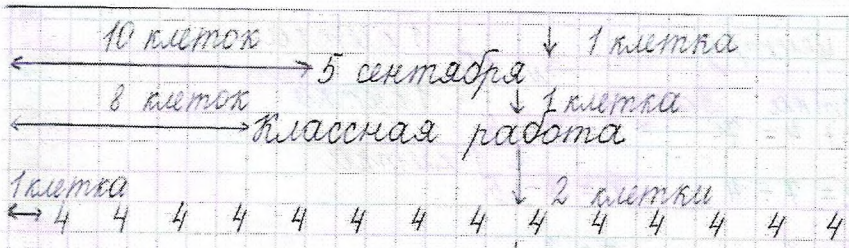 10 клеток 1 клетка
5 сентября
8 клеток 1 клетка
Классная работа
1 клетка 2 клетки
4 4 4 4 4 4 4 4 4 4 4 4 4 4